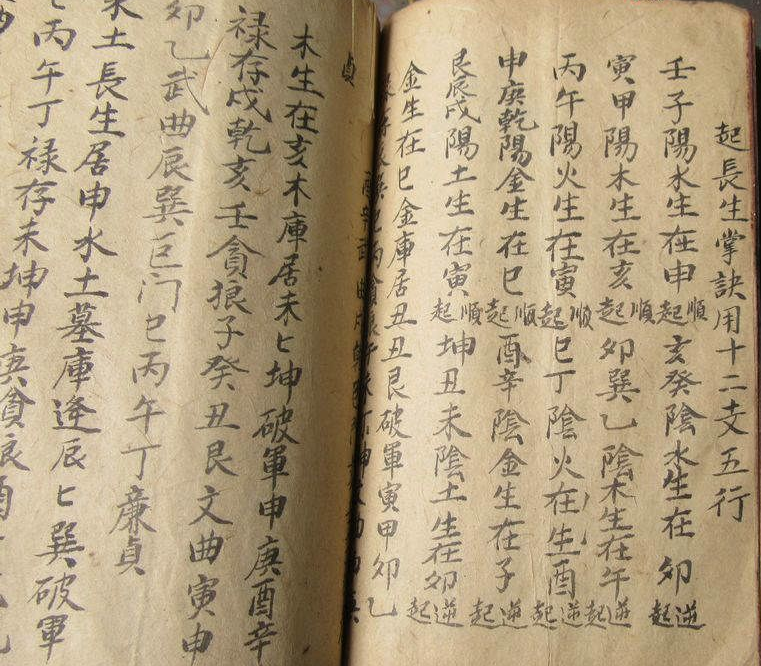 起長生掌訣用十二支五行
壬子陽水生在申順起亥癸陰水生在卯逆起
寅甲陽木生在亥順起卯巽乙陰木生在午逆起
丙午陽火生在寅順起巳丁陰火在生酉逆起
申庚乾陽金生在巳順起酉辛陰金生在子逆起
艮辰戌陽土生在寅順起坤丑未陰土生在卯逆起
金生在巳金庫居丑丑艮破軍寅甲卯乙
貞
木生在亥木庫居未匕坤破軍申庚酉辛
祿存戌乾亥壬貪狼子癸丑艮文曲寅申
卯乙武曲辰巽巨门巳丙午丁廉貞
水土長生居申水土墓庫逢辰匕巽破軍
丙午丁祿存未坤申庚貪狼酉